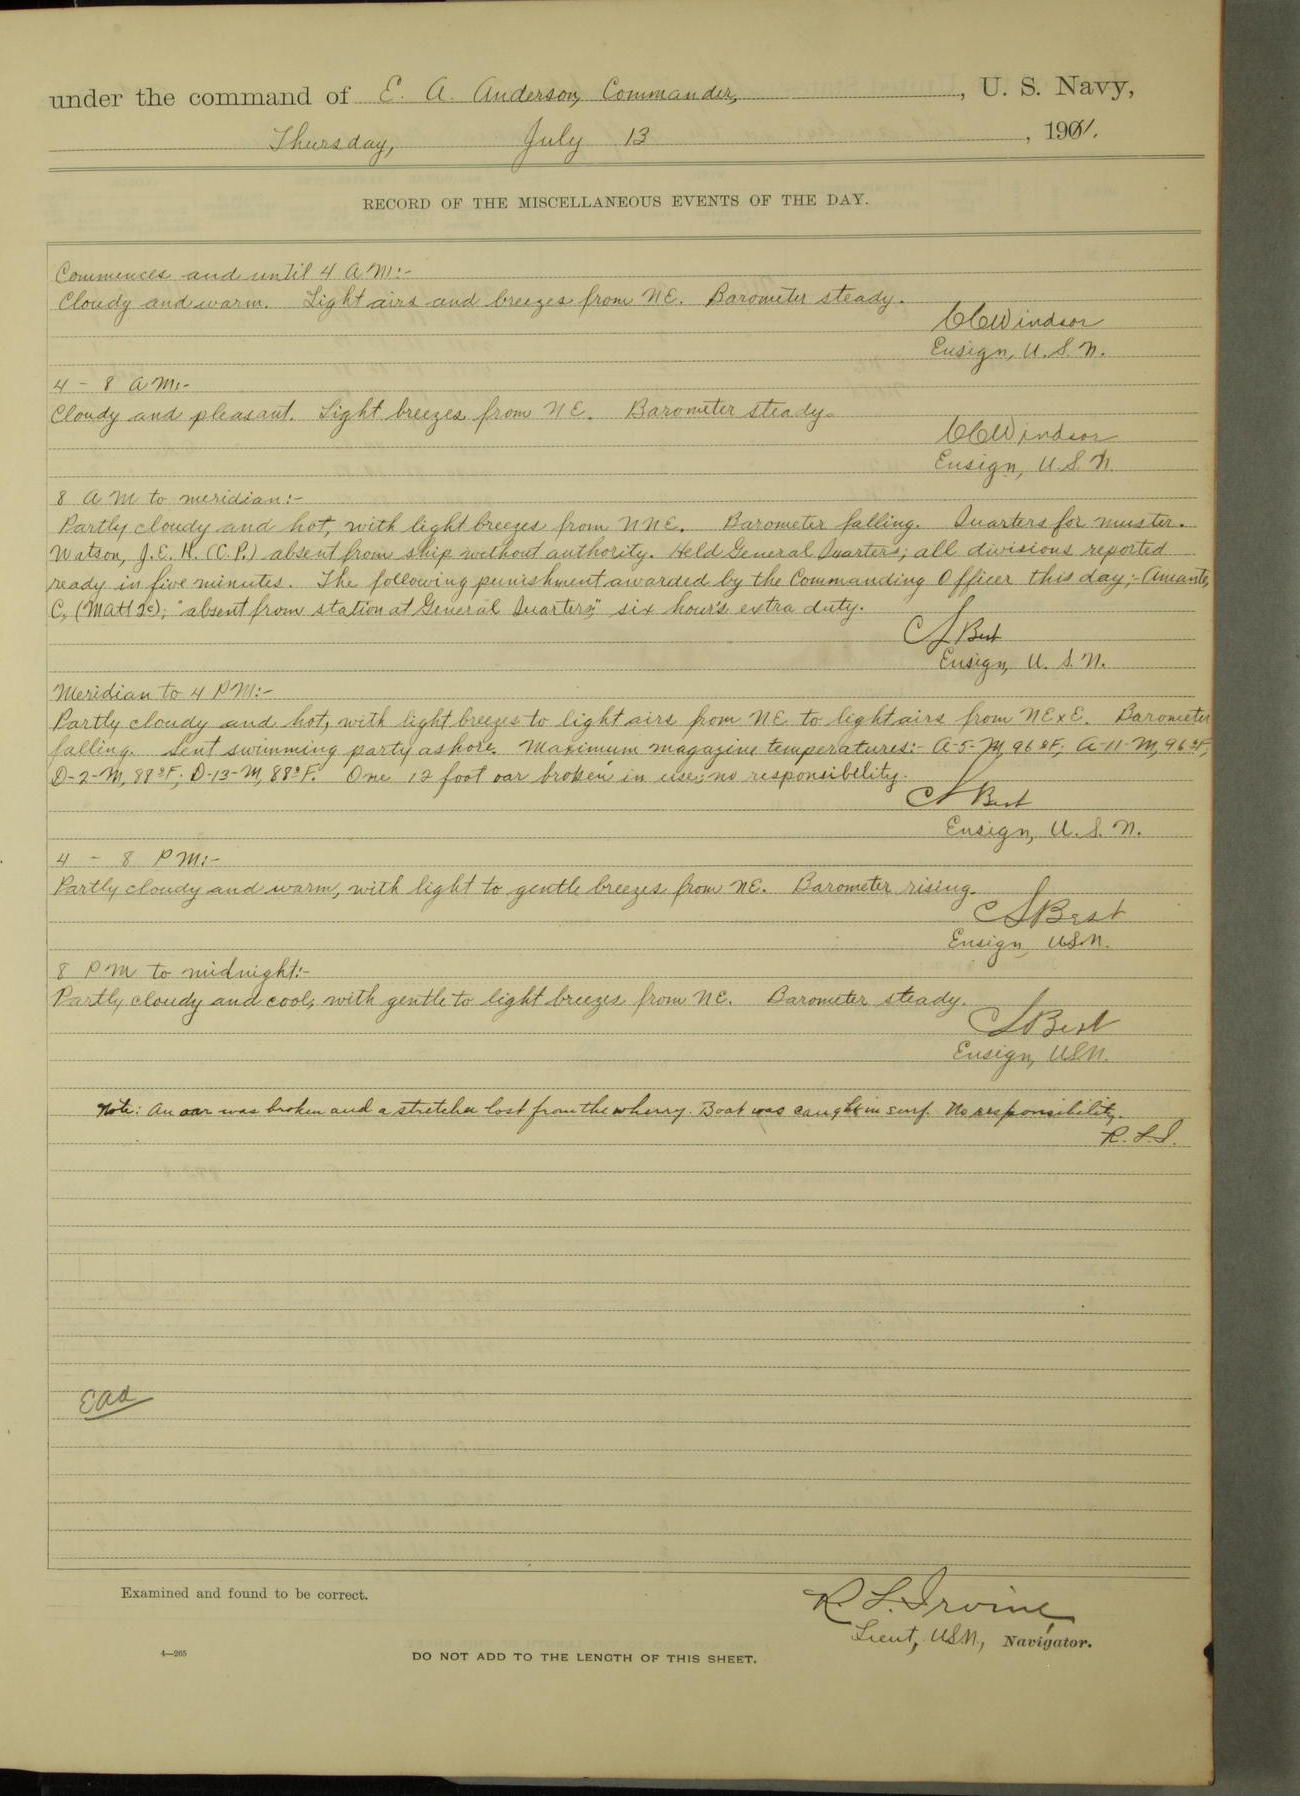 under the command of E. A. Anderson, Commander, , U. S. Navy,
Thursday, July 13 , 1901.
RECORD OF THE MISCELLANEOUS EVENTS OF THE DAY.
Commences and until 4 A.M:-
Cloudy and warm. Light airs and breezes from NE. Barometer steady.
CCWindsor
Ensign, U. S. N.
4 - 8 AM:-
Cloudy and pleasant. Light breezes from NE. Barometer steady.
CCWindsor
Ensign, U. S. N.
8 AM to meridian:-
Partly cloudy and hot, with light breezes from NNE. Barometer falling. Quarters for muster.
Watson, J. E. H. (C. P.) absent from ship without authority. Held General Quarters; all divisions reported
ready in five minutes. The following punishment awarded by the Commanding Officer this day;- Amante,
C, (Matt 2c); "absent from station at General Quarters;" six hours extra duty.
C S Best
Ensign, U. S. N.
Meridian to 4 PM:-
Partly cloudy and hot, with light breezes to light airs from NE to light airs from NExE. Barometer
falling. Sent swimming party ashore. Maximum magazine temperatures:- A-5-M, 96°F; A-11-M, 96°F,
D-2-M, 88°F; D-13-M, 88°F. One 12 foot oar broken in use; no responsibility.
C S Best
Ensign, U. S. N.
4 - 8 PM:-
Partly cloudy and warm, with light to gentle breezes from NE. Barometer rising.
C S Best
Ensign, USN.
8 PM to midnight:-
Partly cloudy and cool, with gentle to light breezes from NE. Barometer steady.
C S Best
Ensign, USN.
Note: An oar was broken and a stretcher lost from the wherry. Boat was caught in surf. No responsibility.
R. L. I.
EAA
Examined and found to be correct.
R. L. Irvine,
Lieut, USN, Navigator.
4—265
DO NOT ADD TO THE LENGTH OF THIS SHEET.